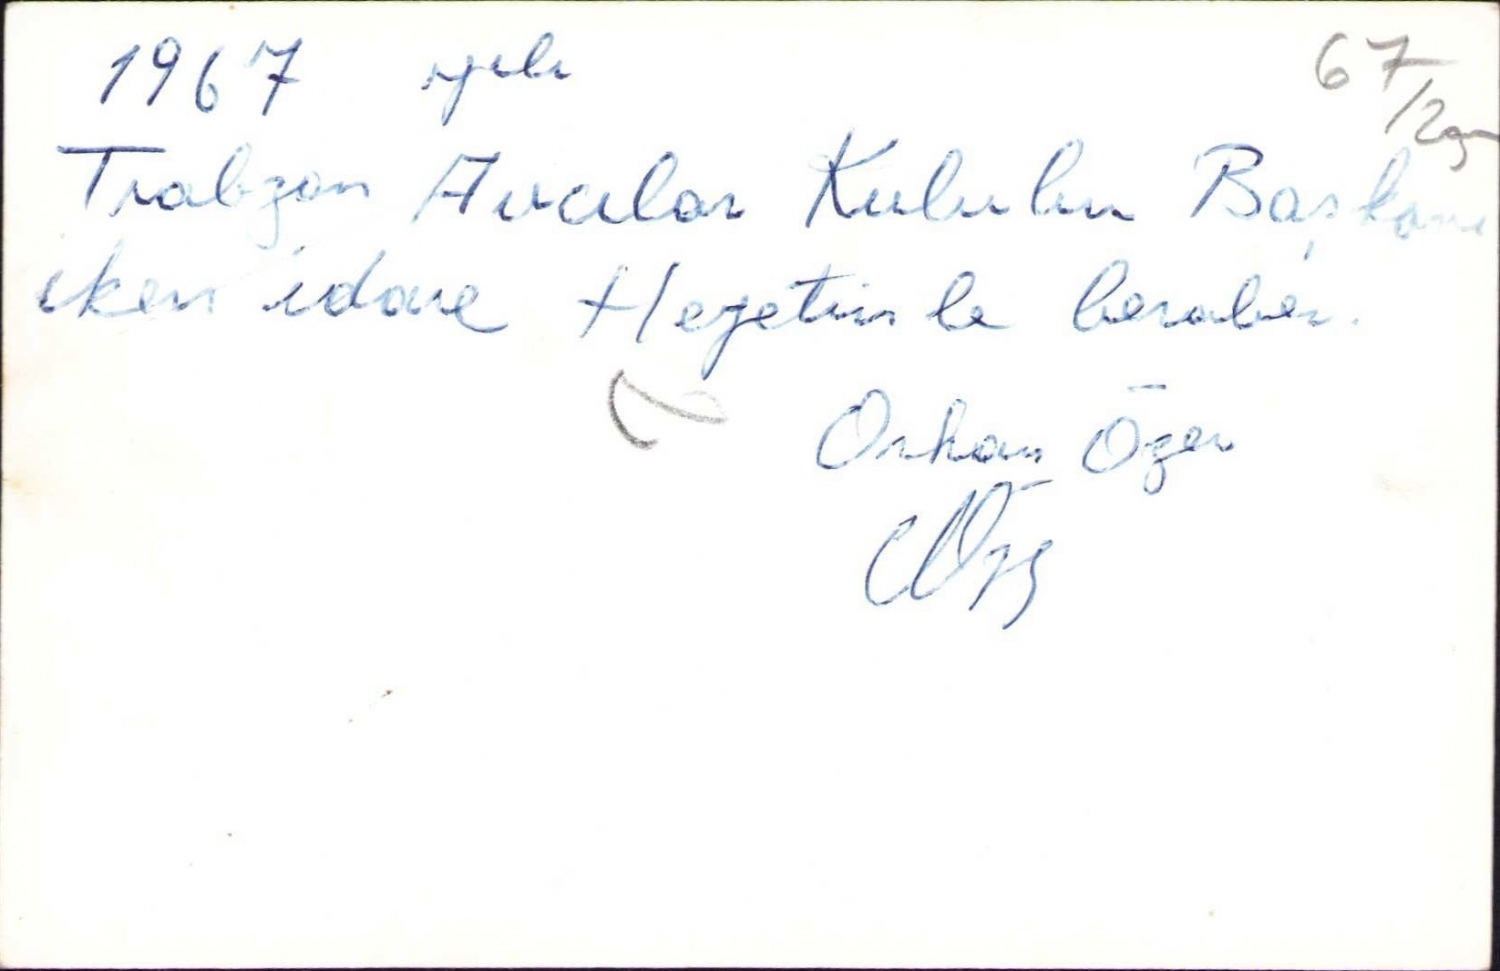 1967
67/2
Trabzon Avcılar Kulubu Başkanı
iken idare Heyetimle beraber.
Orhan Özer